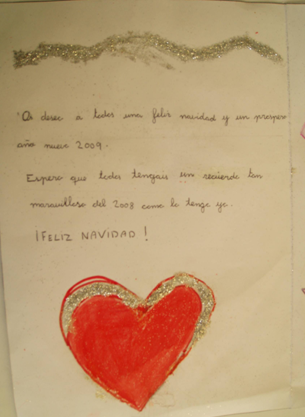 Os deseo a todos una feliz navidad y un prospero
año nuevo 2009.
Espero que todos tengais un recuerdo tan
maravilloso del 2008 como lo tengo yo.
¡FELIZ NAVIDAD!